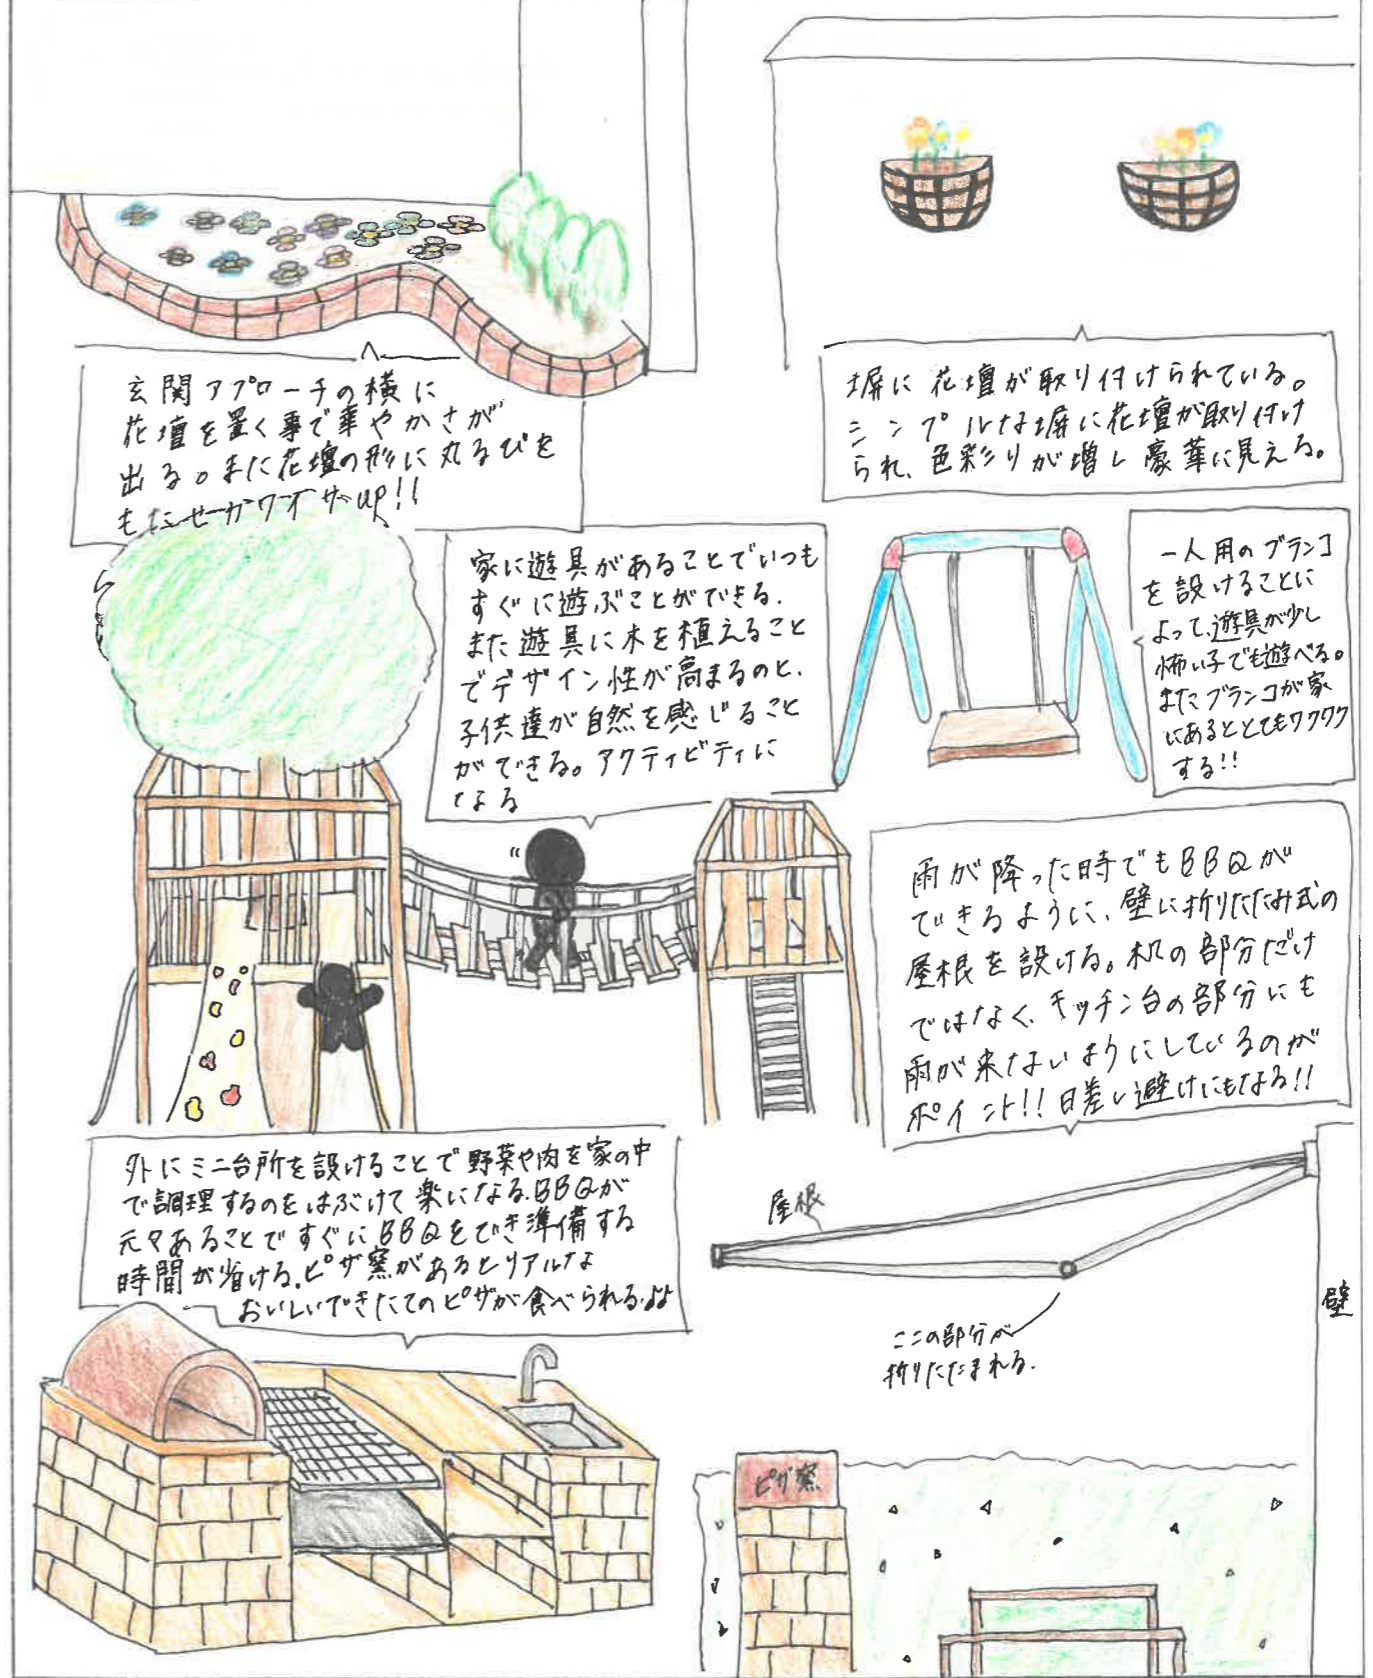 玄関アプローチの横に
花壇を置く事で華やかさが
出る。また花壇の形に丸るびを
もたせカワイサup!!
塀に花壇が取り付けられている。
シンプルな塀に花壇が取り付け
られ、色彩りが増し豪華に見える。
家に遊具があることでいつも
すぐに遊ぶことができる。
また遊具に木を植えること
でデザイン性が高まるのと、
子供達が自然を感じること
ができる。アクティビティに
なる
一人用のブランコ
を設けることに
よって、遊具が少し
怖い子でも遊べる。
またブランコが家
にあるととてもワクワク
する!!
雨が降った時でもBBQが
できるように、壁に折りたたみ式の
屋根を設ける。机の部分だけ
ではなく、キッチン台の部分にも
雨が来ないようにしているのが
ポイント!!日差し避けにもなる!!
外にミニ台所を設けることで野菜や肉を家の中
で調理するのをはぶけて楽になる。BBQが
元々あることですぐにBBQをでき準備する
時間が省ける。ピザ窯があるとリアルな
おいしいできたてのピザが食べられる。
屋根
壁
ここの部分が
折りたたまれる。
ピザ窯